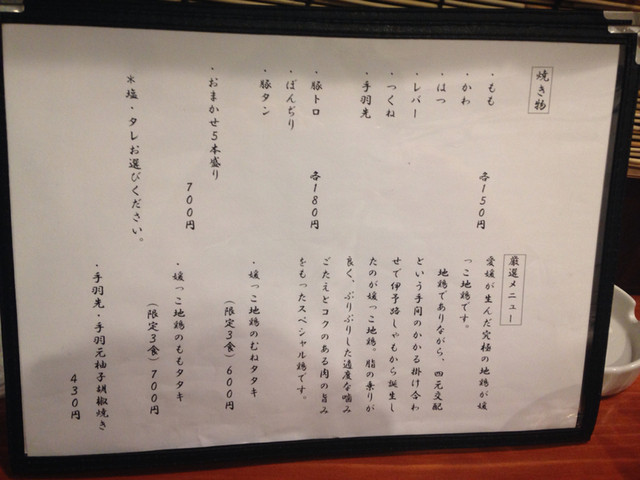 焼き物
・もも
・かわ
・はつ
・レバー
・つくね
・手羽先
各150円
・豚トロ
・ぼんぢり
・豚タン
各180円
・おまかせ5本盛り
700円
＊塩・タレお選びください。
厳選メニュー
愛媛が生んだ究極の地鶏が媛
っこ地鶏です。
地鶏でありながら、四元交配
という手間のかかる掛け合わ
せで伊予路しゃもから誕生し
たのが媛っこ地鶏。脂の乗りが
良く、ぷりぷりした適度な噛み
ごたえとコクのある肉の旨み
をもったスペシャル鶏です。
・媛っこ地鶏のむねタタキ
（限定3食）600円
・媛っこ地鶏のももタタキ
（限定3食）700円
・手羽先・手羽元柚子胡椒焼き
430円